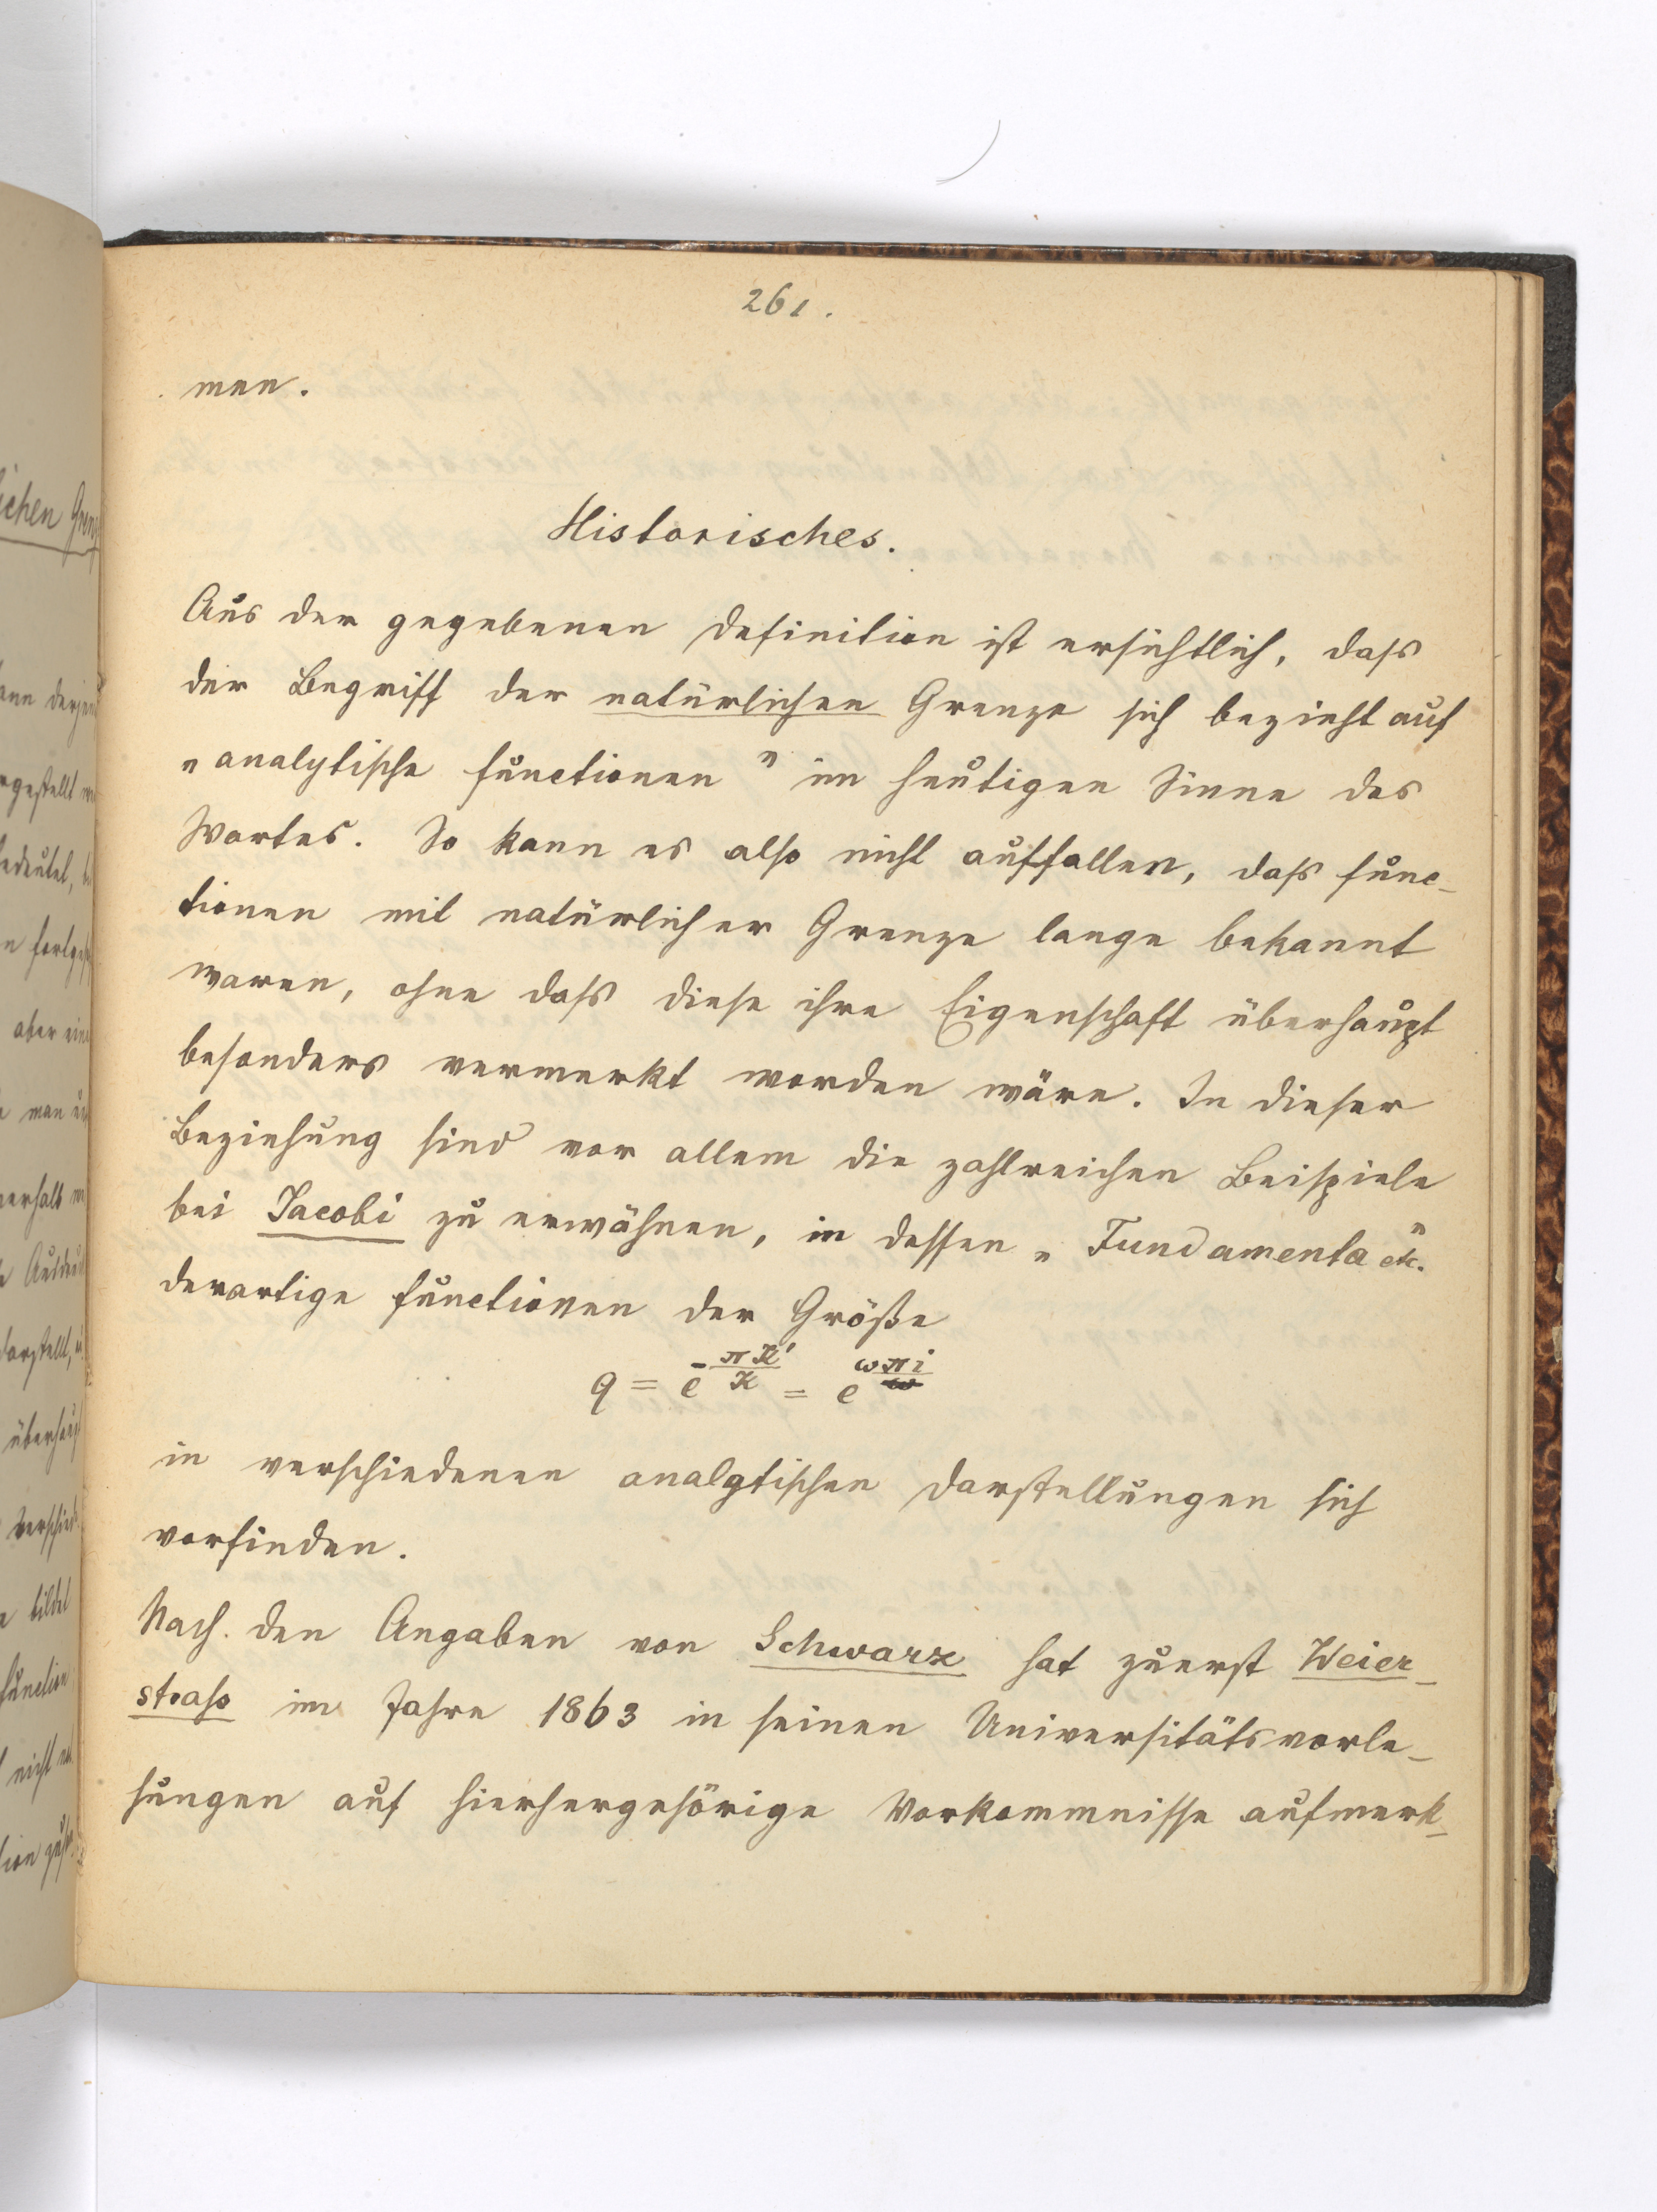 261.
men.
Historisches.
Aus der gegebenen Definition ist ersichtlich, daſs
der Begriff der natürlichen Grenze sich bezieht auf
„analytische Functionen" im heutigen Sinne des
Wortes. So kann es also nicht auffallen, daſs Func-
tionen mit natürlicher Grenze lange bekannt
waren, ohne daſs diese ihre Eigenschaft überhaupt
besonders vermerkt worden wäre. In dieser
Beziehung sind vor allem die zahlreichen Beispiele
bei Jacobi zu erwähnen, in dessen „Fundamenta etc."
derartige Functionen der Größe
q = e^{-\frac{πK'}{K}} = e^{ωπi}
in verschiedenen analytischen Darstellungen sich
vorfinden.
Nach den Angaben von Schwarz hat zuerst Weier-
straſs im Jahre 1863 in seinen Universitätsvorle-
sungen auf hierhergehörige Vorkommnisse aufmerk-